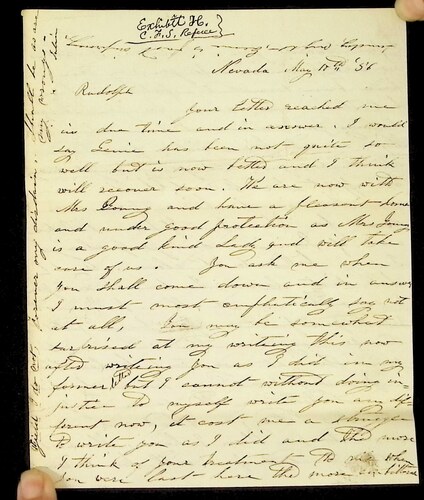 Exhibit H.
C. F. S. Referee
Nevada May 17th '56
Rudolph
Your letter reached me
in due time and in answer. I would
say has been not quite so
well but is now better and I think
will recover soon. We are now with
Mrs Young and have a pleasant home
and under good protection as Mrs Young
is a good kind Lady and will take
care of us. You ask me when
you shall come down and in answer
I must most emphatically say not
at all, You may be somewhat
surprised at my writing this now
after writing you as I did in my
former letter but I cannot without doing in-
justice to myself write you any dif-
ferent now, it cost me a struggle
to write you as I did and the more
I think of your treatment to me when
you were last here the more